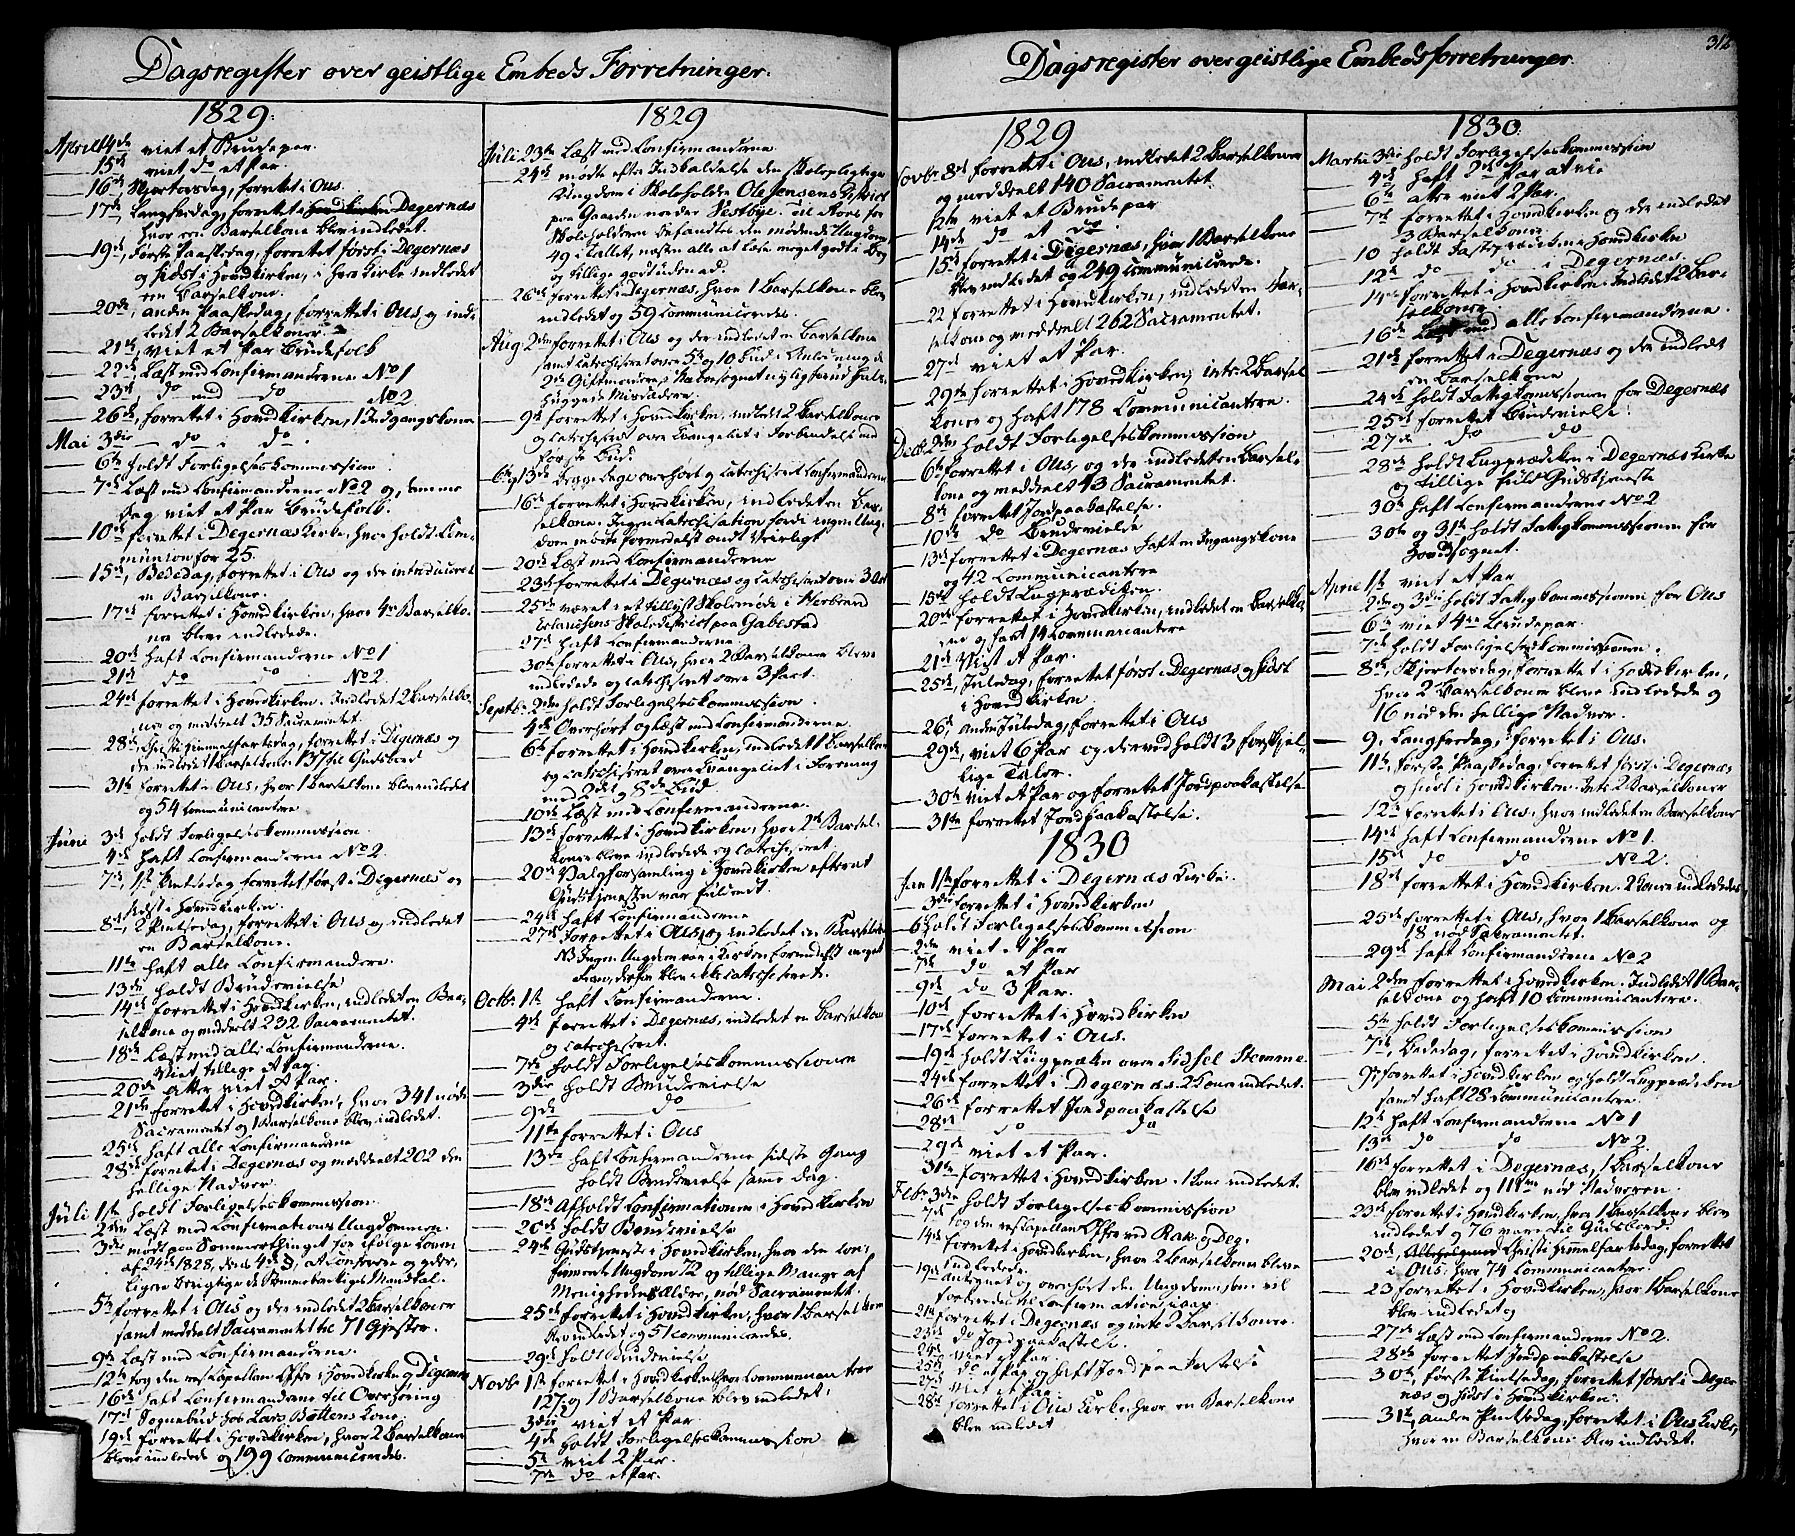 Dagsregister over geistlige Embeds Forretninger.
1829.
April 14de viet et Brudepar.
15de viet do et Par.
16de Skjertorsdag, forrettet i Ous.
17de Langfredag, forrettet i Hovedkirken Degernæs
hvor en Barselkone blev indledet.
19de, Første Paaskedag, forrettet først i Degernæs
og sidst i Hovedkirken, i hver Kirke indledet
en Barselkone.
20de, anden Paaskedag, forrettet i Ous og ind-
ledet 2 Barselkoner.
21de, viet et Par Brudefolk
22de, Læst med Confirmanderne No 1
23de, do med do No 2.
26de, forrettet i Hovedkirken, 1 Indgangskone
Mai 3die do i do.
6te holdt Forligelseskommission.
7de Læst med Confirmanderne No 2 og samme
Dag viet et Par Brudefolk.
10de forrettet i Degernæs Kirke, hvor holdt Com-
munion for 25
15de, Bededag, forrettet i Ous og der introduceret
en Barselkone.
17de forrettet i Hovedkirken, hvor 4re Barselko-
ner bleve indledede.
20de haft Confirmanderne No 1
21de do do No 2.
24de forrettet i Hovedkirken. Indledet 2 Barselko-
ner og meddelt 35 Sacramentet.
28de Christi Himmelfartsdag, forrettet i Degernæs og
der indledet 1 Barselkone 137 til Guds bord
31te forrettet i Ous, hvor 1 Barselkone blev indledet
og 54 Communicantere
Juni 3de holdt Forligelseskommission.
4de haft Confirmanderne No 2.
7de, 1ste Pintsedag forrettet først i Degernæs og
sidst i Hovedkirken.
8de, 2 Pintsedag, forrettet i Ous og indledet
en Barselkone.
11te haft alle Confirmandere.
13de holdt Brudevielse
14de forrettet i Hovedkirken, indledet en Bar-
selkone og meddelt 232 Sacramentet.
18de Læst med alle Confirmanderne.
Viet tillige et Par.
20de atter viet et Par.
21de forrettet i Hovedkirken, hvor 341 nøde
Sacramentet og 1 Barselkone blev indledet.
25de haft alle Confirmanderne
28de forrettet i Degernæs og meddeelt 202 den
hellige Nadver.
Juli 1ste holdt Forligelseskommission.
2den Læst med Confirmations Ungdommen.
3die mødt paa Sommerthinget for ifølge Loven
af 24de 1828, dens 4de §, at conferere og yder-
ligere berigtige de stemmeberettigedes Mandtal.
5te forrettet i Ous og der indledet 2 Barselkoner
samt meddelt Sacramentet til 71 Gjester.
9de Læst med Confirmanderne.
12te tog den res. Capellan Offer i Hovedkirken og Degernæs
16de haft Confirmanderne til Overhøring
17de Sognebud hos Lars Bøttens Kone.
19de forrettet i Hovedkirken, hvor 2 Barselkoner
bleve indledede og 199 Communicerede.
1829
Juli 23de Læst med Confirmanderne
24de mødte efter Indkaldelse den Skolepligtige
Ungdom i Skoleholder Ole Jensens District
paa Gaarden nordre Vestbye. Til Roes for
Skoleholderen befandtes den mødende Ungdom,
49 i Tallet, næsten alle at læse meget godt i Bog
og tillige godt udenad.
26de forrettet i Degernæs, hvor 1 Barselkone blev
indledet og 59 Communicerede.
Aug. 2den forrettet i Ous og der indledet en Barselkone
samt catechiseret over 5te og 10 Bud i Anledning de
2de Giftmordere i Nabosognet nylig forud hals-
huggede Misdædere.
9de forrettet i Hovedkirken, indledt 2 Barselkoner
og catechiseret over Evangeliet i Forbindelse med
første Bud.
13de begge Dage overhørt og catechiseret Confirmanderne
16de forrettet i Hovedkirken, indledet en Bar-
selkone. Ingen Catechisation fordi ingen Ung-
dom mødte formedelst ondt Veirligt
20de Læst med Confirmanderne
23de forrettet i Degernæs og catechiseret over 3 Art
25de været i et tillyst Skolemøde i Herbrand
Erlandsens Skoledistrict paa Gabestad
27de haft Confirmanderne.
30te forrettet i Ous, hvor 2 Barselkoner bleve
indledede og catechiseret over 3 Part.
Septb. 2den holdt Forligelseskommission.
4de Overhørt og læst med Confirmanderne.
6te forrettet i Hovedkirken, indledet 1 Barselkone
og catechiseret over Evangeliet i Forening
med 2det og 8de Bud
10de Læst med Confirmanderne.
13de forrettet i Hovedkirken, hvor 2de Barsel-
koner bleve indledede og catechiseret.
20de Valgforsamling i Hovedkirken efterat
Gudstjenesten var fuldendt.
24de haft Confirmanderne
27de forrettet i Ous og indledet en Barselkone
NB Ingen Ungdom var i Kirken formedelst meget
Regn, derfor blev ikke catechiseret.
Octbr. 1ste haft Confirmanderne.
4de forrettet i Degernæs, indledet en Barselkone
og catechiseret.
7de holdt Forligelseskommissionen
3die holdt Brudevielse
9de do
11te forrettet i Ous
13de haft Confirmanderne sidste Gang
holdt Brudevielse samme Dag.
18de Afholdt Confirmationen i Hovedkirken
20de holdt Brudevielse
24de Gudstjeneste i Hovedkirken, hvor den con-
firmerte Ungdom 72 og tillige Mange af
Menighedens Ældre, nød Sacramentet.
25de forrettet i Hovedkirken, hvor 1 Barselkone
blev indledet og 51 communicerede.
29de holdt Brudevielse
Novbr 1ste forrettet i Hovedkirken hvor Communicantere
127, og 1 Barselkone blev indledet.
3die viet et Par
4de holdt Forligelseskommission
5te viet 2 Par.
7de do et Par.
Dagsregister over geistlige Embedsforretninger.
312
1829
Novbr 8de forrettet i Ous, indledet 2 Barselkoner
og meddeelt 140 Sacramentet.
12te viet et Brudepar
14de do et do
15de forrettet i Degernæs, hvor 1 Barselkone
blev indledet og 249 Communicerede.
22 forrettet i Hovedkirken, indledet en Bar-
selkone og meddelt 262 Sacramentet.
27de viet et Par.
29de forrettet i Hovedkirken, intr. 2 Barsel
koner og haft 178 Communicantere.
Decb 2den holdt Forligelseskommission
6te forrettet i Ous, og der indledet en Barsel-
kone og meddelt 43 Sacramentet.
8de forrettet Jordpaakastelse.
10de do Brudevielse
13de forrettet i Degernæs haft en Ingangskone
og 42 Communicantere
15de holdt Ligprædiken.
20de forrettet i Hovedkirken, indledet en Barselko-
ne og haft 14 Communicantere
21de Viet et Par.
25de, Juledag, forrettet først i Degernæs og sidst
i Hovedkirken.
26de, Anden Juledag, forrettet i Ous
29de, viet 6 Par og derved holdt 3 forskjel-
lige Taler.
30te viet et Par og forrettet Jordpaakastelse
31te forrettet Jordpaakastelse.
1830
Jan 1ste forrettet i Degernæs Kirke.
3die forrettet i Hovedkirken
6 holdt Forligelseskommission
2den viet et Par
7de do et Par
9de do 3 Par.
10de forrettet i Hovedkirken
17de forrettet i Ous.
19de holdt Ligpræken over Sidsel Stemme.
24de forrettet i Degernæs. 2 Koner indledet.
26de forrettet Jordpaakastelse
28de do do
29de viet et Par.
31te forrettet i Hovedkirken. 1 Kone indledet.
Febr 3die holdt Forligelseskommission
7de tog den res Capellan Offer ved Rak. og Deg.
14de forrettet i Hovedkirken, hvor 2 Barselkoner bleve
indledede.
19de antegnet og overhørt den Ungdom, som vil
forberedes til Confirmation i Aar.
21de forrettet i Degernæs og intr. 2 Barselkoner.
23de do Jordpaakastelse.
24de viet et Par.
25de do et Par og haft Jordpaakastelse
27de viet et Par.
28de forrettet i Ous Kirke, hvor en Barselkone
blev indledet
1830
Marti 3die holdt Forligelseskommission
4de haft 2de Par at vie
6te atter viet 2 Par.
7de forrettet i Hovedkirken og der indledet
3 Barselkoner.
10 holdt Fasteprædiken i Hovedkirken
12te do do i Degernæs.
14de forrettet i Hovedkirken. Indledet 2 Bar-
selkoner
16de Læst med alle Confirmanderne.
21de forrettet i Degernæs og der indledt
en Barselkone
24de holdt Fattigkommissionen for Degernæs
25de forrettet Brudevielse.
27de do do
28de holdt Ligprædiken i Degernæs Kirke
og tillige fuld Gudstjeneste
30te haft Confirmanderne No 2
30te og 31te holdt Fattigkommissionen for
Hovedsognet.
April 1ste viet et Par
2den og 3die holdt Fattigkommissionen for Ous
6te viet 4re Brudepar.
7de holdt Forligelseskommission.
8de, Skjertorsdag, forrettet i Hovedkirken,
hvor 2 Barselkoner bleve indledede og
16 nød den hellige Nadver.
9. Langfredag, forrettet i Ous.
11te, første Paaskedag, forrettet først i Degernæs
og sidst i Hovedkirken. Intr. 2 Barselkoner
12te forrettet i Ous, hvor indledet en Barselkone
14de haft Confirmanderne No 1.
15de do do No 2.
18de forrettet i Hovedkirken. 2 Koner indledede
25de forrettet i Ous, hvor 1 Barselkone og
18 nød Sacramentet.
29de haft Confirmanderne No 2
Mai 2den forrettet i Hovedkirken. Indledet 1 Bar-
selkone og haft 10 Communicantere.
5te holdt Forligelseskommission
7de, Bededag, forrettet i Hovedkirken.
9de forrettet i Hovedkirken og holdt Ligprædiken
samt haft 28 Communicantere.
12te haft Confirmanderne No 1
13de do do No 2
16de forrettet i Degernæs, 1 Barselkone
blev indledet og 111 nød Nadveren.
23de forrettet i Hovedkirken, hvor 1 Barselkone blev
indledet og 76 vare til Guds bord.
20de, Christi Himmelfartsdag, forrettet
i Ous, hvor 74 Communicantere.
23 forrettet i Hovedkirken, hvor 1 Barselkone
blev indledet og
27de Læst med Confirmanderne No 2.
28de forrettet Jordpaakastelse
30te, første Pintsedag, forrettet først i Deger-
næs og sidst i Hovedkirken.
31te, anden Pintsedag, forrettet i Ous Kirke,
hvor en Barselkone blev indledet.